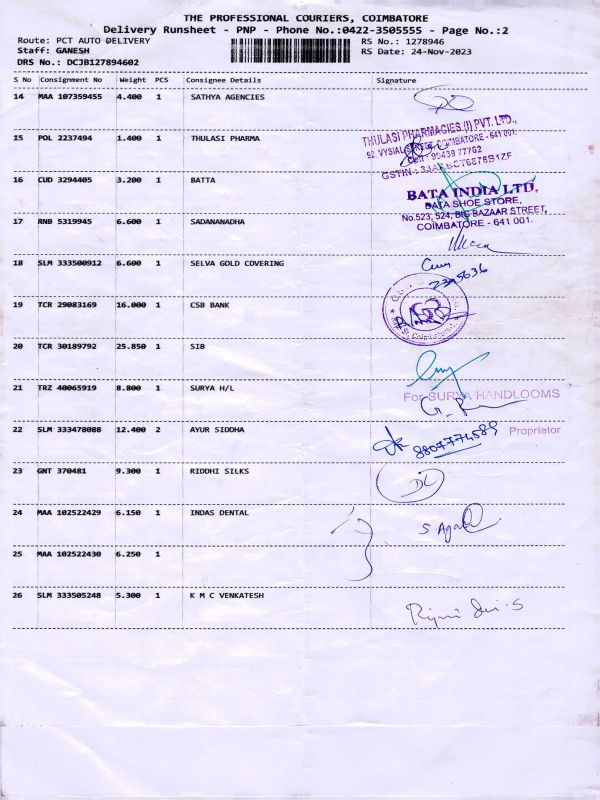 THE PROFESSIONAL COURIERS, COIMBATORE
Delivery Runsheet - PNP - Phone No.:0422-3505555 - Page No.:2
Route: PCT AUTO DELIVERY RS No.: 1278946
Staff: GANESH RS Date: 24-Nov-2023
DRS No.: DCJB127894602
S No Consignment No Weight PCS Consignee Details Signature
14 MAA 107359455 4.400 1 SATHYA AGENCIES
15 POL 2237494 1.400 1 THULASI PHARMA
THULASI PHARMACIES (I) PVT. LTD.,
COIMBATORE - 641 001.
16 CUD 3294405 3.200 1 BATTA
BATA INDIA LTD,
BATA SHOE STORE,
No.523, 524, BIG BAZAAR STREET,
COIMBATORE - 641 001.
17 RNB 5319945 6.600 1 SADANANADHA
18 SLM 333500912 6.600 1 SELVA GOLD COVERING
19 TCR 29083169 16.000 1 CSB BANK
20 TCR 30189792 25.850 1 SIB
21 TRZ 40065919 8.800 1 SURYA H/L
For SURYA HANDLOOMS
Proprietor
22 SLM 333478088 12.400 2 AYUR SIDDHA
8807774589
23 GNT 370481 9.300 1 RIDDHI SILKS
24 MAA 102522429 6.150 1 INDAS DENTAL
25 MAA 102522430 6.250 1
26 SLM 333505248 5.300 1 K M C VENKATESH